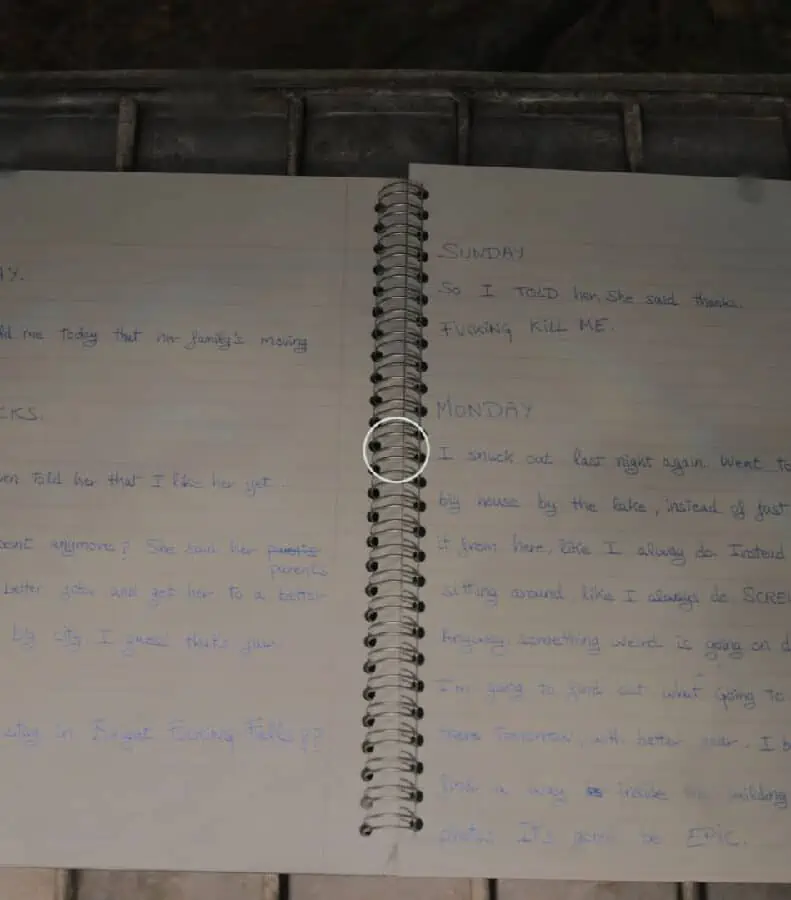 AY.
ld me today that her family's moving
CKS.
ven told her that I like her yet.
point anymore? She said her parents
parents
better jobs and get her to a better
big city I guess that's fair
stay in Bright Fucking Falls??
SUNDAY
So I TOLD her. She said thanks.
FUCKING KILL ME.
MONDAY
I snuck out last night again. Went to
big house by the lake, instead of just
it from here, like I always do. Instead
sitting around like I always do. SCREW
Anyway, something weird is going on d
I'm going to find out what. Going to
there tomorrow, with better gear. I b
find a way inside building
photos. It's gonna be EPIC.